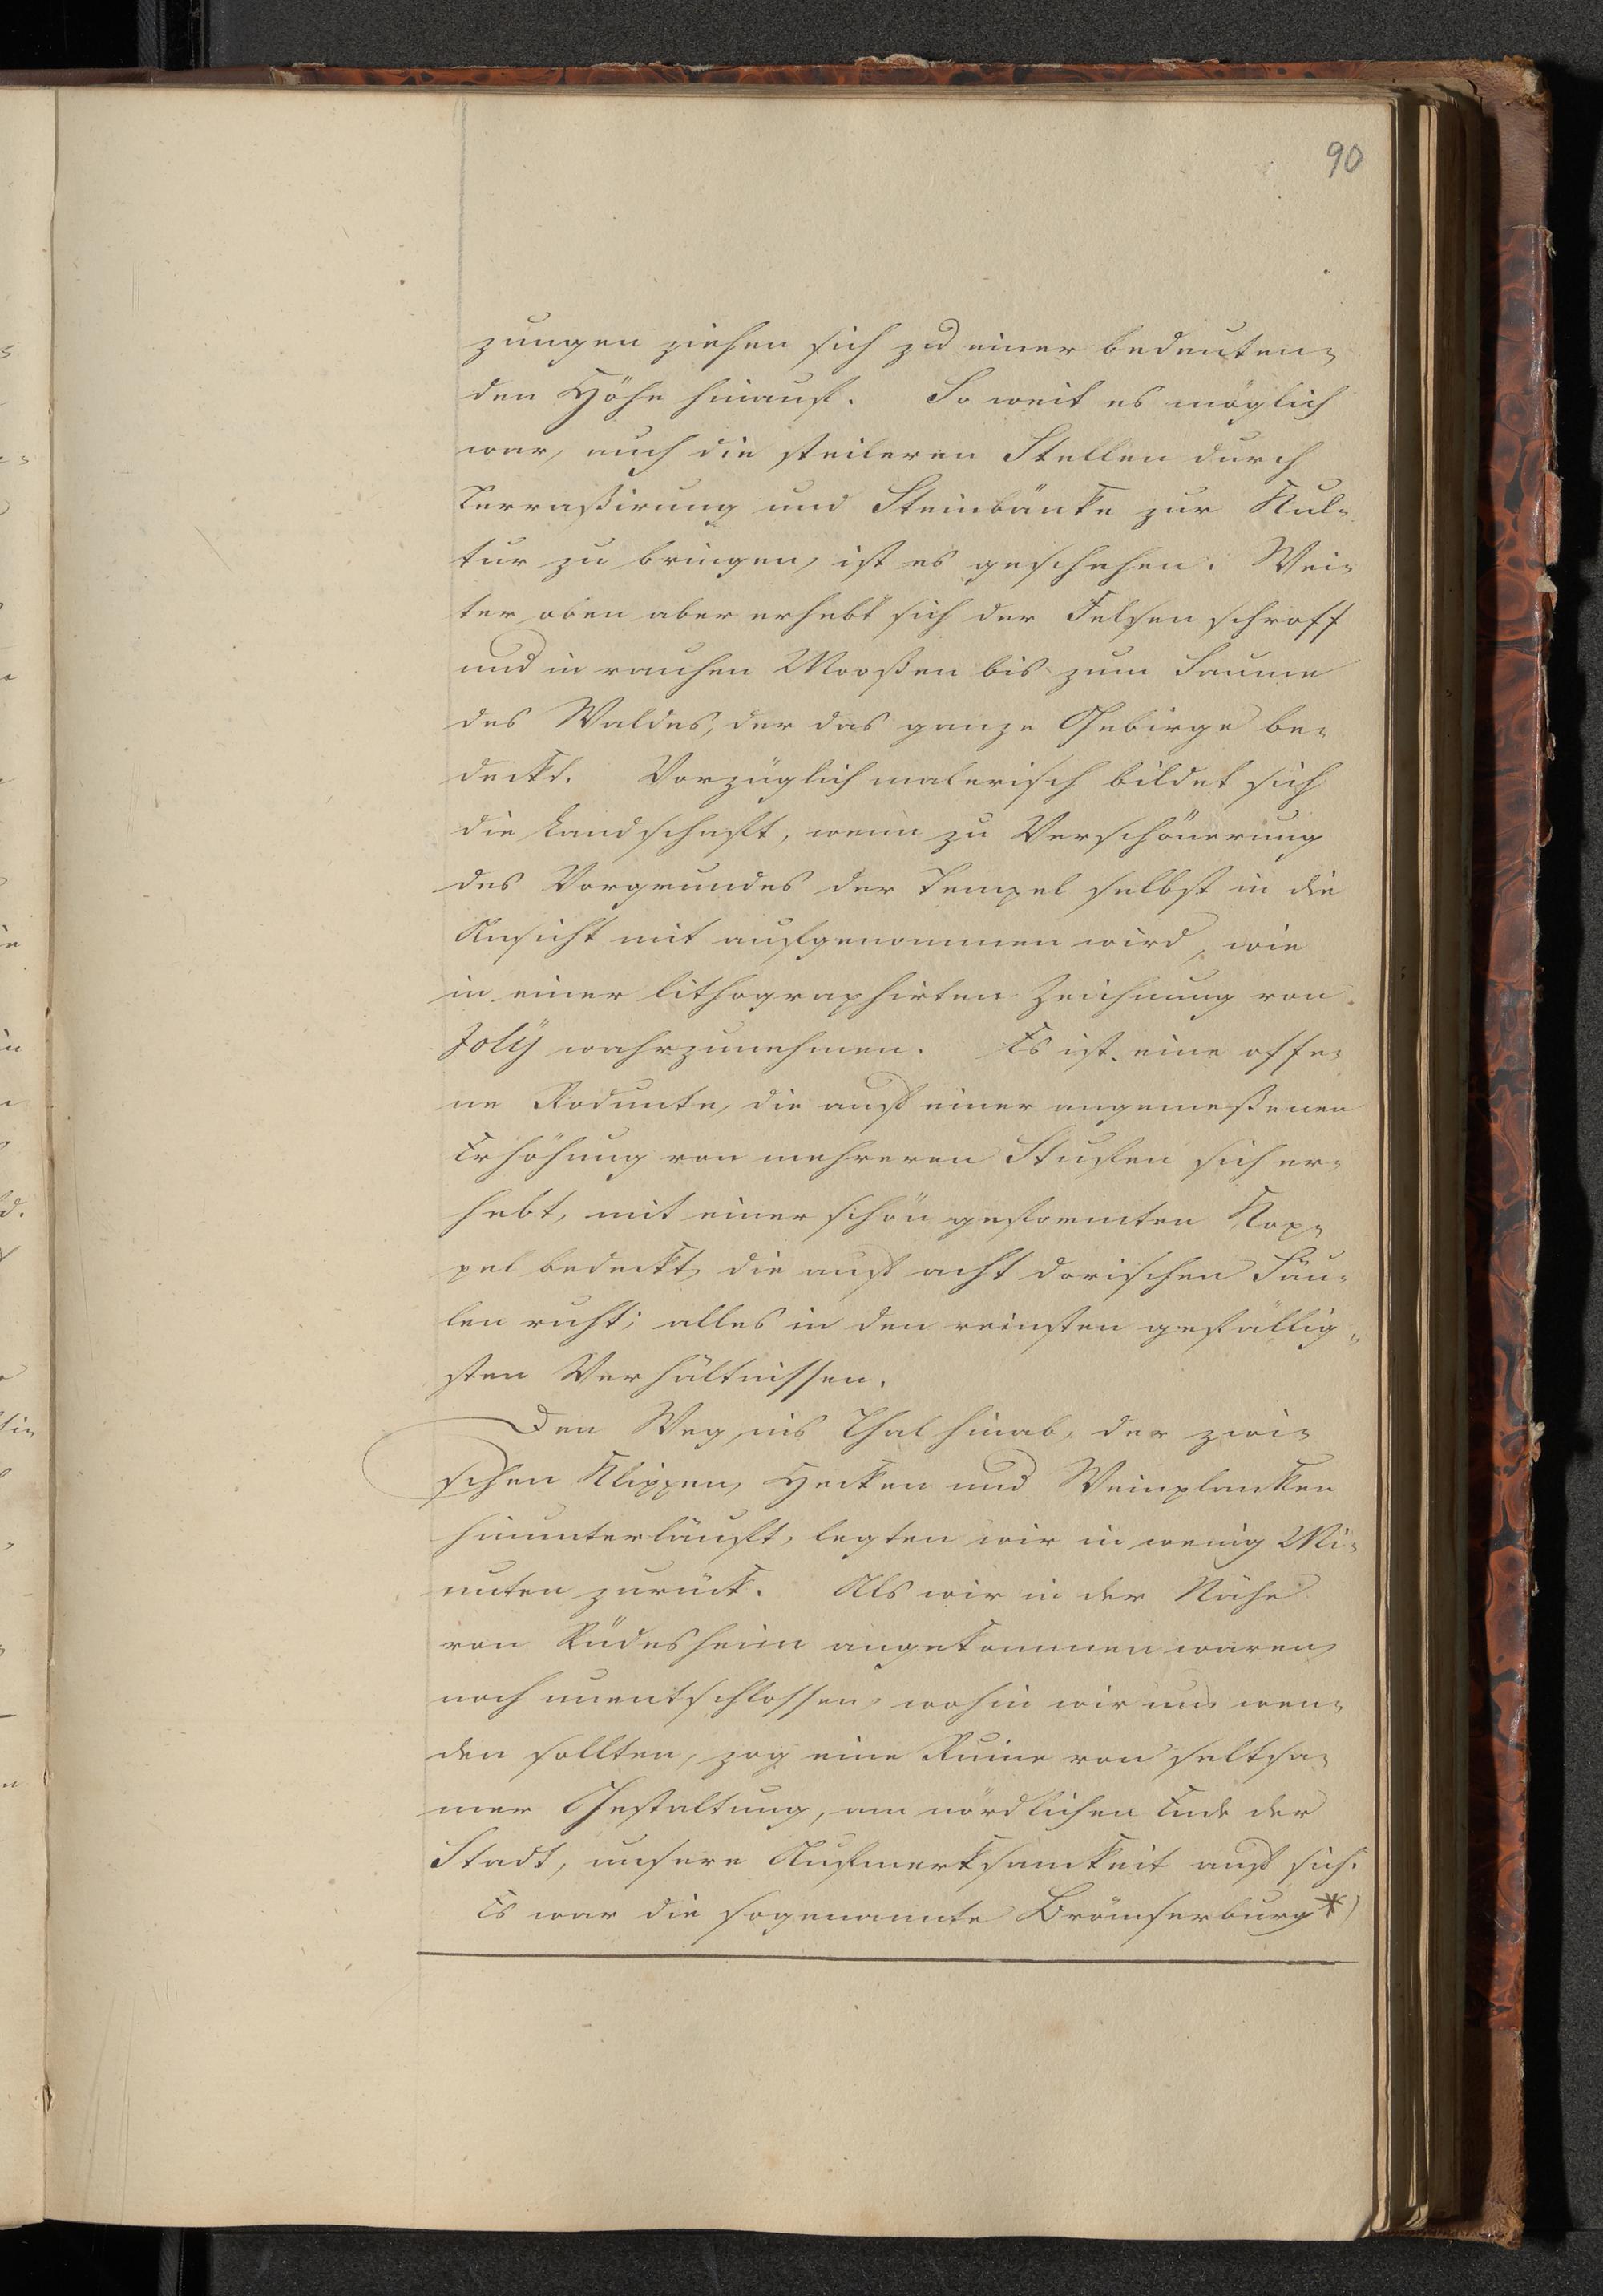 90
zungen ziehen sich zu einer bedeuten-
den Höhe hinauf. So weit es möglich
war, auch die steileren Stellen durch
Terraßirung und Steinbänke zur Kul-
tur zu bringen, ist es geschehen. Wei-
ter oben aber erhebt sich der Felsen schroff
und in rauhen Mooßen bis zum Saume
des Waldes, der das ganze Gebirge be-
deckt. Vorzüglich malerisch bildet sich
die Landschaft, wenn zu Verschönerung
des Vorgrundes der Tempel selbst in die
Ansicht mit aufgenommen wird, wie
in einer lithographirten Zeichnung von
Joly wahrzunehmen. Es ist eine offe-
ne Rodunte, die auf einer angemeßenen
Erhöhung von mehreren Stufen sich er-
hebt, mit einer schön geformten Kop-
pel bedeckt, die auf acht dorischen Säu-
len ruht; alles in den reinsten gefällig-
sten Verhältnissen.
Den Weg ins Thal hinab, der zwi-
schen Klippen, Hecken und Weinplanken
hinunterläuft, legten wir in wenig Mi-
nuten zurück. Als wir in der Nähe
von Rüdesheim angekommen waren,
noch unentschlossen, wohin wir uns wen-
den sollten, zog eine Ruine von seltsa-
mer Gestaltung, am nördlichen Ende der
Stadt, unsere Aufmerksamkeit auf sich.
Es war die sogenannte Brömserburg*)